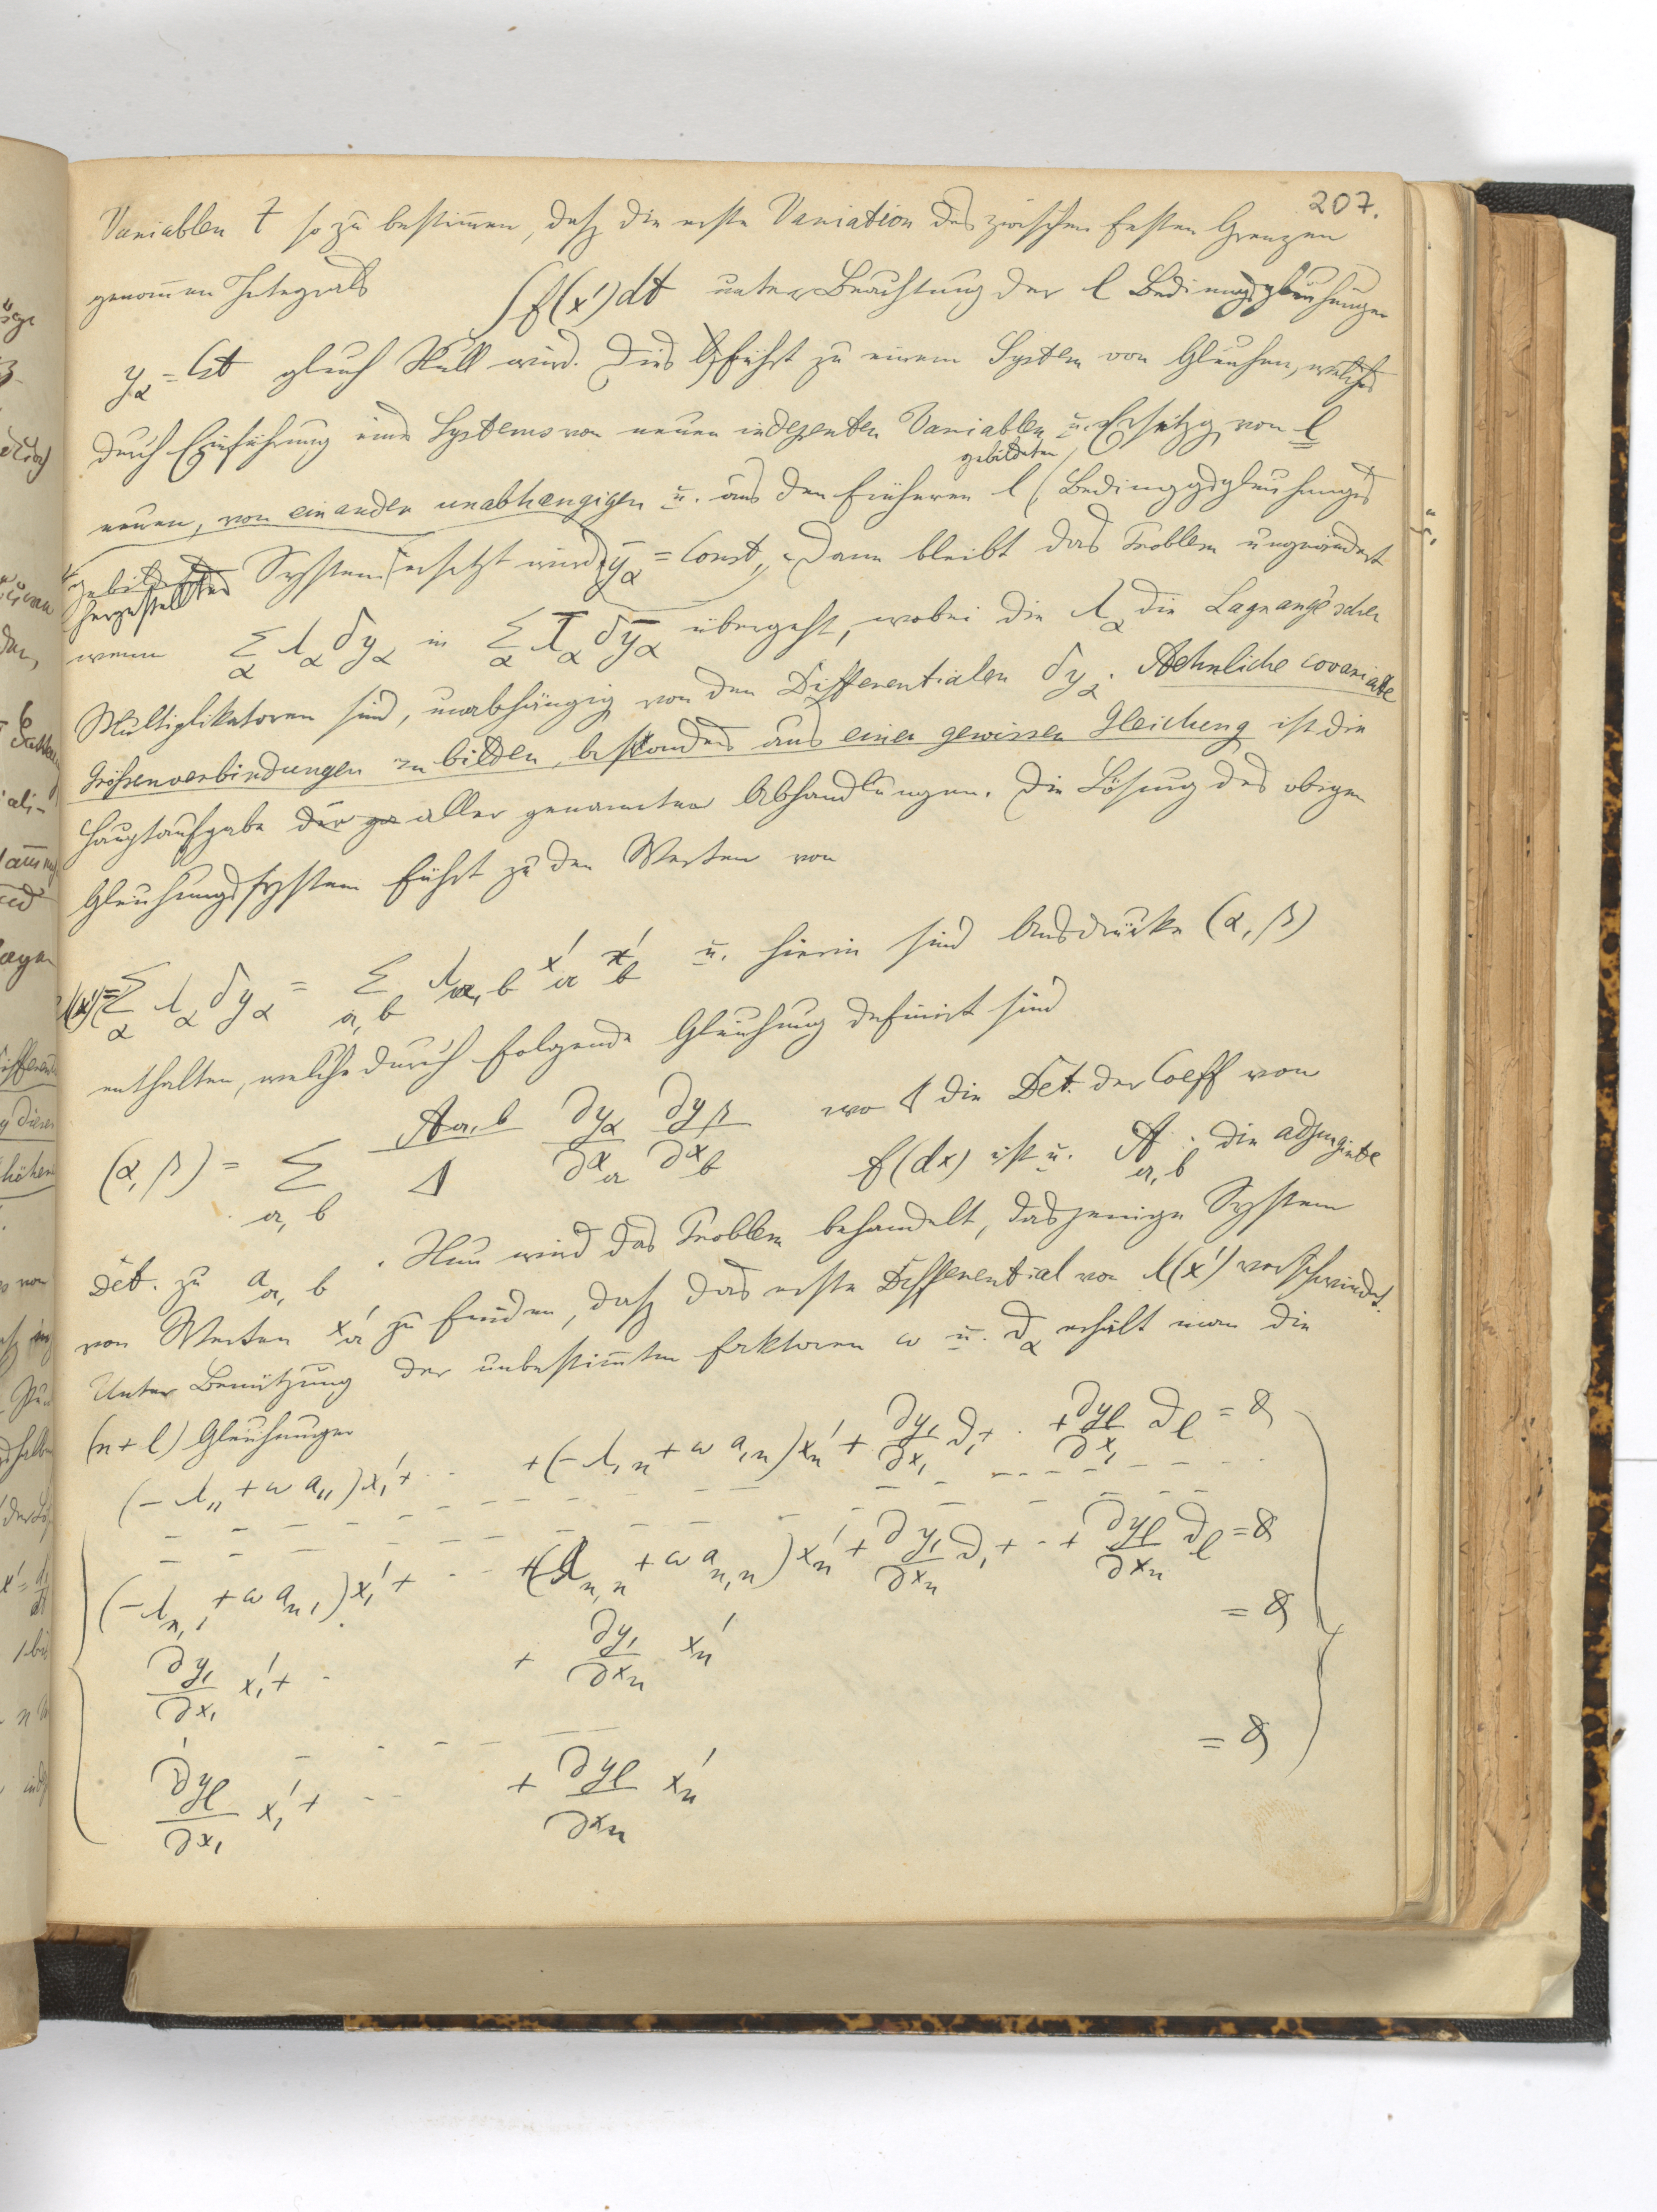 207.
Variablen t so zu bestimmen, daß die erste Variation des zwischen festen Grenzen
genommen Integrals ∫f(x')dt unter Beachtung der l Bedingungsgleichungen
y_α = Cst gleich Null wird. Dies führt zu einem System von Gleichen, welches
durch Einführung eines Systems von neuen indepenten Variablen u. Ersetzg von l
neuen, von einander unabhaengigen u. aus den früheren l gebildeten Bedinggsgleichungs
gebildetes hergestelltes System ersetzt wird ȳ_α = Const, Dann bleibt das Problem ungeändert
wenn Σ_α λ_α δy_α in Σ_α λ̄_α δȳ_α übergeht, wobei die λ_α die Lagrange'schen
Multiplikatoren sind, unabhängig von den Differentialen δy_α. Aehnliche covariante
Größenverbindungen zu bilden, besonders aus einer gewissen Gleichung ist die
Hauptaufgabe der ge aller genannten Abhandlungen. Die Lösung des obigen
Gleichungssystem führt zu den Werten von
λ(x') = Σ_α λ_α δy_α = Σ_{a,b} λ_{a,b} x'_a x'_b u. hierin sind Ausdrücke (α, β)
enthalten, welche durch folgende Gleichung definirt sind
(α, β) = Σ_{a,b} A_{a,b}/Δ ∂y_α/∂x_a ∂y_β/∂x_b wo Δ die Det. der Coeff von
f(dx) ist u. A_{a,b} die adjungirte
Det. zu a_{a,b}. Nun wird das Problem behandelt, dasjenige System
von Werten x'_a zu finden, daß das erste Differential von λ(x') verschwindet.
Unter Benützung der unbestimmten Faktoren ω u. ∂_α erhält man die
(n + l) Gleichungen
(-λ_11 + ω a_11)x_1' + · · +(-λ_1n + ω a_1n)x_n' + ∂y_1/∂x_1 ∂_1 + · + ∂y_l/∂x_1 ∂_l = 0
(-λ_{n,1} + ω a_{n1})x_1' + · · +(λ_{n,n} + ω a_{n,n})x_n' + ∂y_1/∂x_n ∂_1 + · + ∂y_l/∂x_n ∂_l = 0
∂y_1/∂x_1 x_1' + · + ∂y_1/∂x_n x_n' = 0
∂y_l/∂x_1 x_1' + · · + ∂y_l/∂x_n x_n' = 0